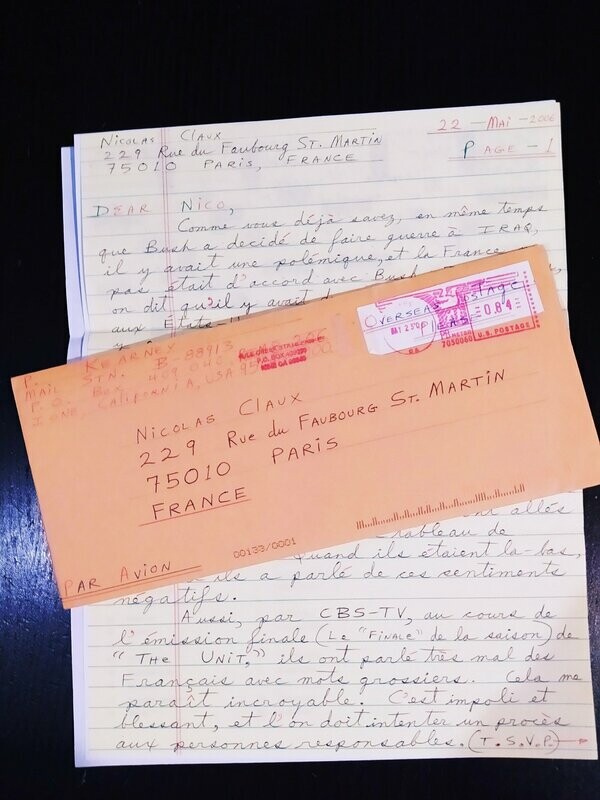 Nicolas Claux
229 Rue du Faubourg St. Martin
75010 Paris, France
22 - Mai - 2006
Page - 1
Dear Nico,
Comme vous déjà savez, en même temps
que Bush a decidé de faire guerre à IRAQ,
il y avait une polémique, et la France
pas était d'accord avec Bush
on dit qu'il y avait
aux États-
Overseas Postage
Please
0.84
U.S. POSTAGE
P. Kearney B-88913
Mail Stn.
P.O. Box 409040
Ione, California, USA
Nicolas Claux
229 Rue du Faubourg St. Martin
75010 Paris
France
00133/0001
Par Avion
allés
tableau de
Quand ils étaient la-bas,
ils a parlé de ces sentiments
négatifs.
Aussi, par CBS-TV, au cours de
l'émission finale (Le "Finale" de la saison) de
"The Unit," ils ont parlé très mal des
Français avec mots grossiers. Cela me
paraît incroyable. C'est impoli et
blessant, et l'on doit intenter un procès
aux personnes responsables. (T.S.V.P.)